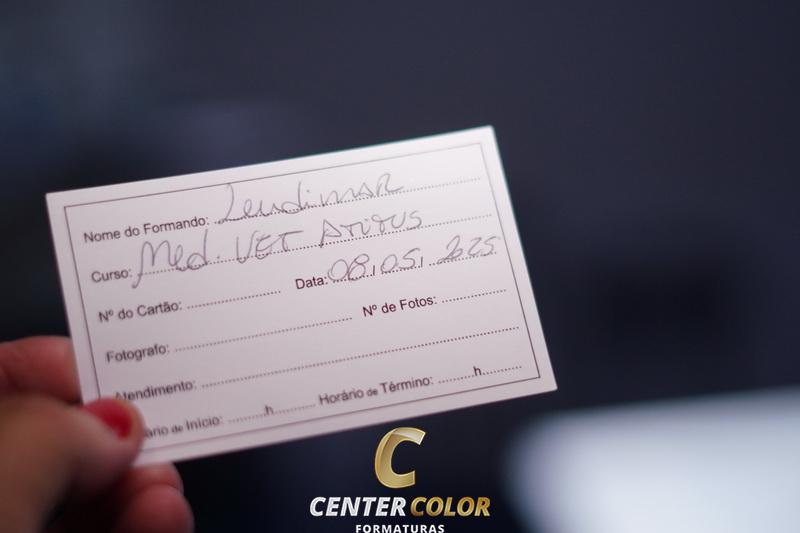 Nome do Formando: Leudimar
Curso: Med. VET ATITUS
Nº do Cartão: Data: 08/05/2025
Fotografo: Nº de Fotos:
Atendimento:
ário de Início: h Horário de Término: h
C
CENTER COLOR
FORMATURAS